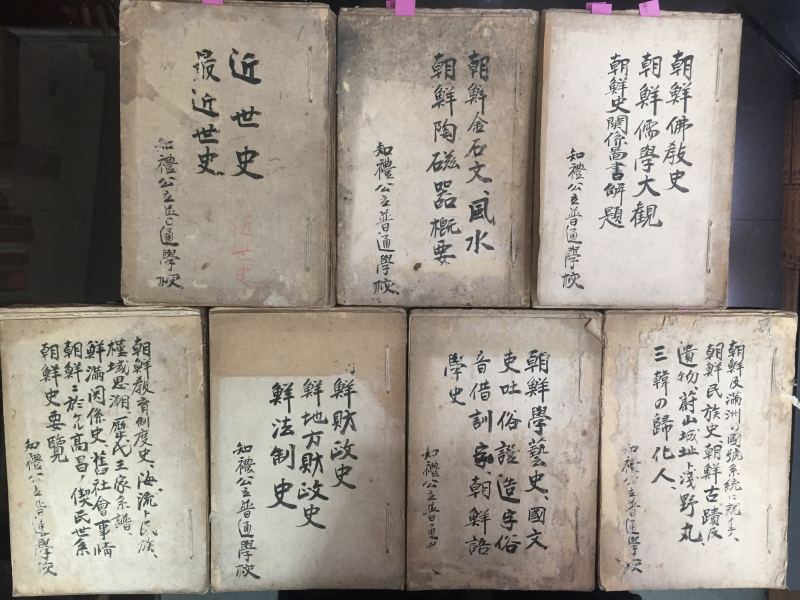 近世史
最近世史
知禮公立普通學校
近世史
朝鮮金石文、風水
朝鮮陶磁器概要
知禮公立普通學校
朝鮮佛教史
朝鮮儒學大觀
朝鮮史關係圖書解題
知禮公立普通學校
朝鮮教育制度史、海流ト民族、
檀域思潮、歷代王家系譜、
鮮滿関係史、舊社會事情
朝鮮ニ於ケル高昌ノ偰氏世系
朝鮮史要覽
知禮公立普通學校
鮮財政史
鮮地方財政史
鮮法制史
知禮公立普通學校
朝鮮學藝史、國文
吏吐俗證造字俗
音借訓字、朝鮮語
學史
知禮公立普通
朝鮮及滿洲ノ國號系統ニ就
朝鮮民族史、朝鮮古蹟及
遺物、蔚山城址ト淺野丸
三韓の歸化人、
知禮公立普通學校